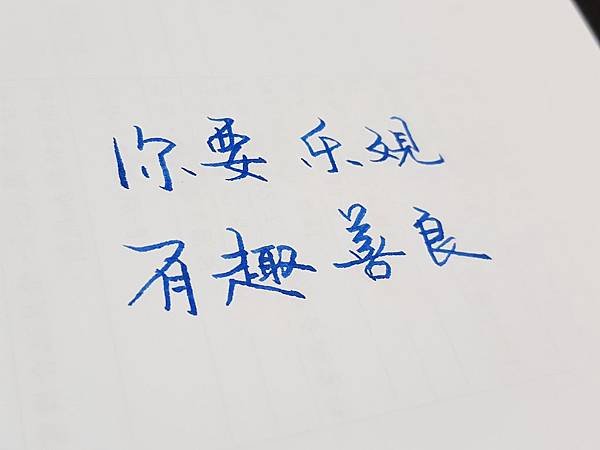 你要乐观
有趣善良